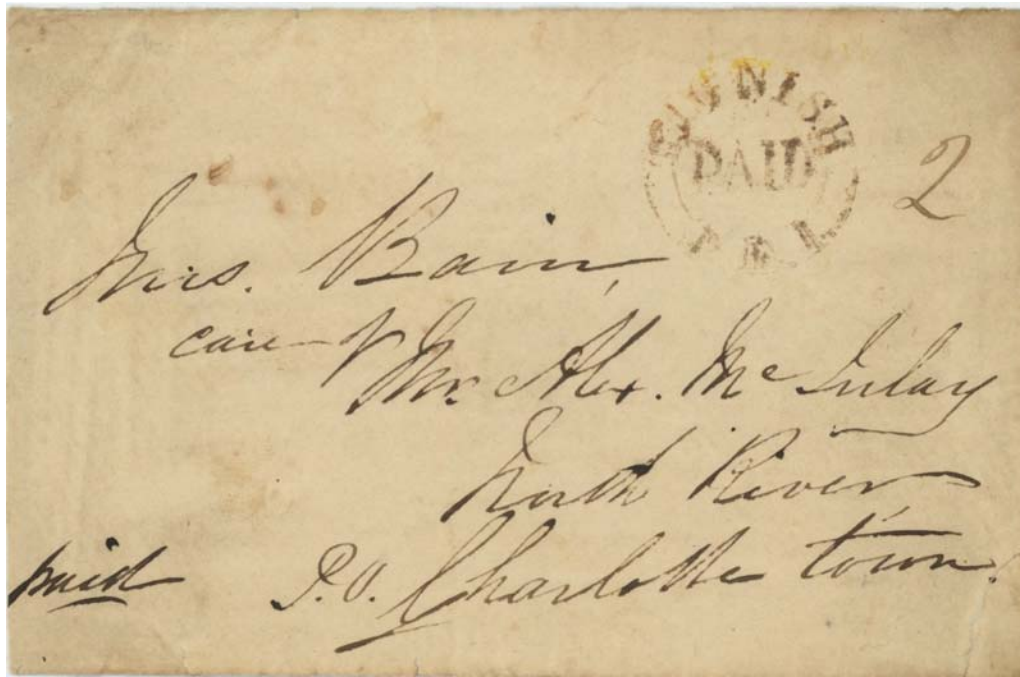 TIGNISH
PAID
P.E.I.
2
Mrs. Bain,
care of
Mr. Alex. McInlay
North River
P.O. Charlotte town.
paid